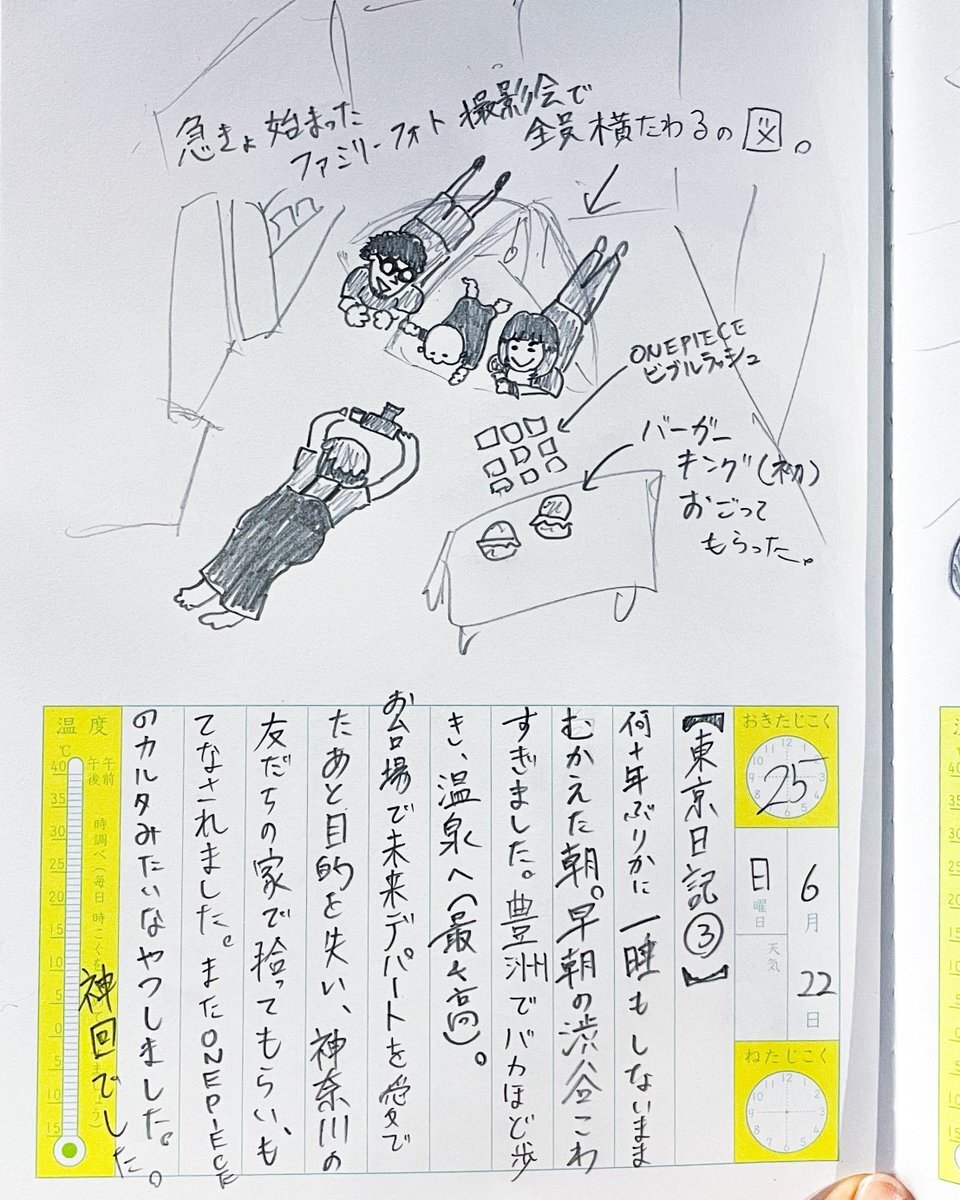 急きょ始まった
ファミリーフォト撮影会で
全員横たわるの図。
ONEPIECE
ビブルラッシュ
バーガー
キング(初)
おごって
もらった。
おきたじこく
25
6月
22日
日曜日
天気
ねたじこく
【東京日記③】
何十年ぶりかに一睡もしないまま
むかえた朝。早朝の渋谷こわ
すぎました。豊洲でバカほど歩
き、温泉へ(最&高)。
お台場で未来デパートを愛で
たあと目的を失い、神奈川の
友だちの家で拾ってもらい、も
てなされました。またONEPIECE
のカルタみたいなヤツしました。
神回でした。
温度
℃
午前
午後
時調べ(毎日 時こくを
40
35
30
25
20
15
10
5
0
5
10
15